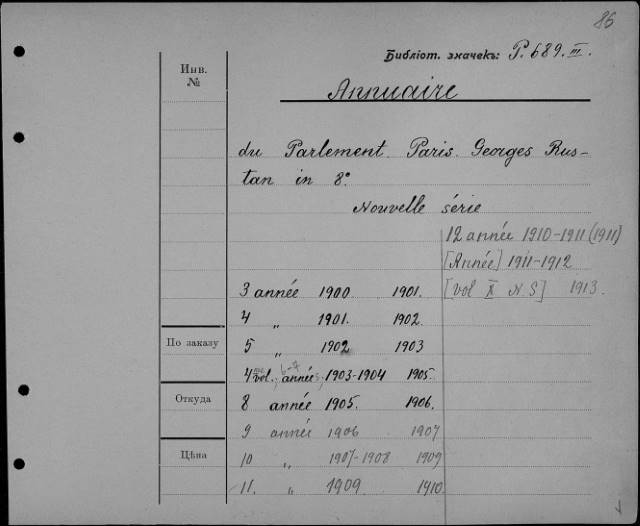 86
Библіот. значекъ: P. 689. III.
Инв. №
Annuaire
du Parlement. Paris. Georges Rus-
tan in 8°.
Nouvelle série
12 année 1910-1911 (1911)
[Année] 1911-1912
[vol X N.S] 1913.
3 année 1900 1901.
4 „ 1901. 1902.
По заказу
5 „ 1902 1903
4me vol., 6-7 années, 1903-1904 1905.
Откуда
8 année 1905. 1906.
9 année 1906 1907
Цѣна
10 „ 1907-1908 1909
11. „ 1909 1910